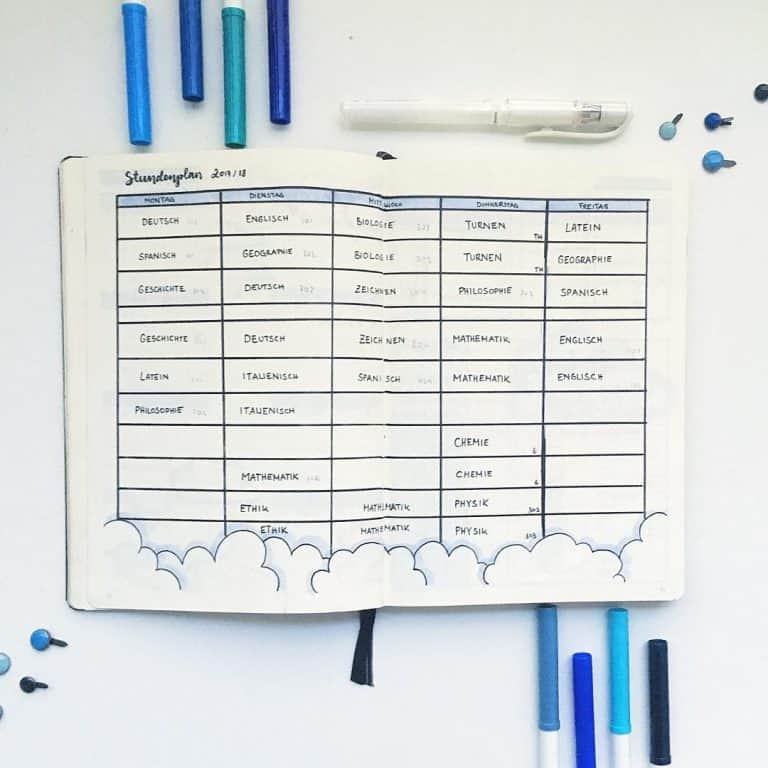 Stundenplan 2017/18
MONTAG DIENSTAG MITTWOCH DONNERSTAG FREITAG
DEUTSCH ENGLISCH BIOLOGIE TURNEN TH LATEIN
SPANISCH GEOGRAPHIE BIOLOGIE TURNEN TH GEOGRAPHIE
GESCHICHTE DEUTSCH ZEICHNEN PHILOSOPHIE SPANISCH
GESCHICHTE DEUTSCH ZEICHNEN MATHEMATIK ENGLISCH
LATEIN ITALIENISCH SPANISCH MATHEMATIK ENGLISCH
PHILOSOPHIE ITALIENISCH
CHEMIE
MATHEMATIK CHEMIE
ETHIK MATHEMATIK PHYSIK
ETHIK MATHEMATIK PHYSIK